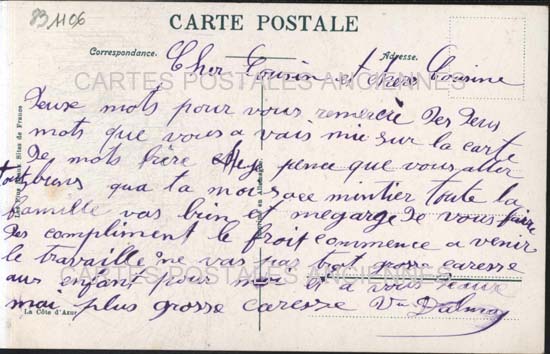 83 1106
CARTE POSTALE
Correspondance. Adresse.
Cher Cousin et chère Cousine
CARTES POSTALES ANCIENNES
Deux mots pour vous remercie des deus
mots que vous a vais mie sur la carte
De mots frère je pence que vous aller
tout biens qua ta moi ace mintier toute la
famille vas bien et me garge de vous faire
des compliment le froit commence a venir
le travaille ne vas pas trot grosse caresse
CARTES POSTALES ANCIENNES
aus enfant pour moi et a vous deaux
mai plus grosse caresse Ve Dalmas
Les plus beaux Sites de France
La Côte d'Azur
en Allemagne